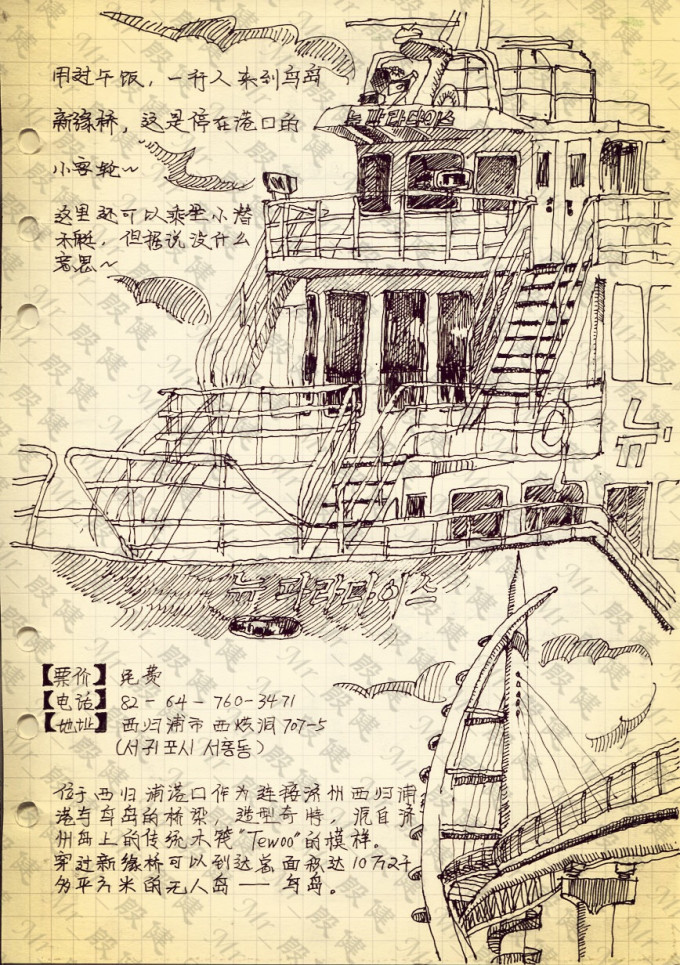 用过午饭，一行人来到鸟岛
新缘桥，这是停在港口的
小客轮～
这里还可以乘坐小潜
水艇，但据说没什么
意思～
뉴파라다이스
뉴
뉴파라다이스
【票价】 免费
【电话】 82-64-760-3471
【地址】 西归浦市 西烘洞 707-5
(서귀포시 서홍동)
位于西归浦港口作为连接济州西归浦
港与鸟岛的桥梁，造型奇特，源自济
州岛上的传统木筏"Tewoo"的模样。
穿过新缘桥可以到达总面积达10万2千
多平方米的无人岛——鸟岛。
Mr. 殷健